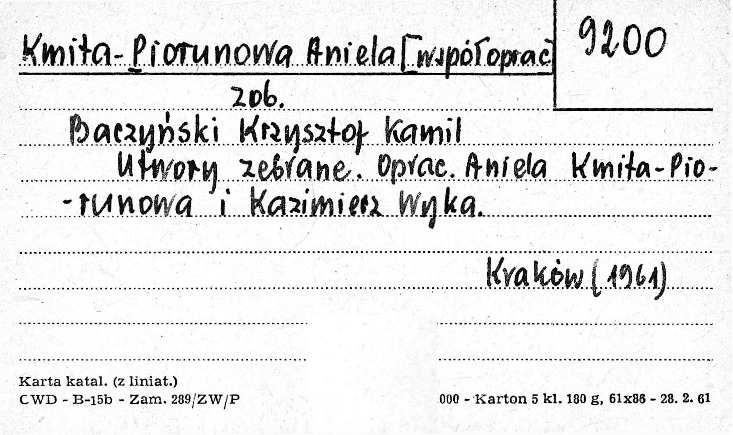 Kmita-Piorunowa Aniela [współoprac]
9200
zob.
Baczyński Krzysztof Kamil
Utwory zebrane. Oprac. Aniela Kmita-Pio-
-runowa i Kazimierz Wyka.
Kraków (1961)
Karta katal. (z liniat.)
CWD - B-15b - Zam. 289/ZW/P
000 - Karton 5 kl. 180 g, 61x86 - 28. 2. 61